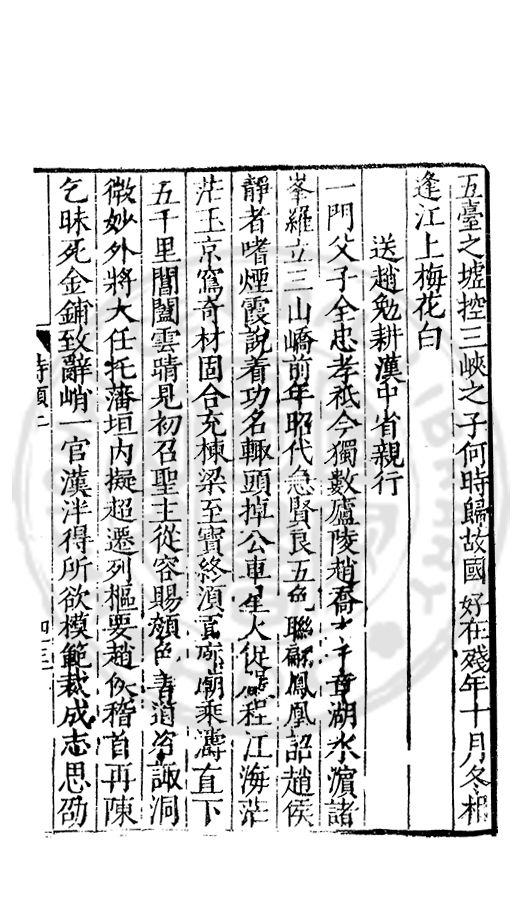 五臺之墟控三峽之子何時歸故國好在殘年十月冬相
逢江上梅花白
送趙勉耕漢中省親行
一門父子全忠孝祇今獨數廬陵趙喬木千章湖水濱諸
峯羅立三山嶠前年昭代急賢良五色聯翩鳳凰詔趙侯
靜者嗜煙霞說着功名輙頭掉公車星火促嚴程江海茫
茫玉京窵奇材固合充棟梁至寶終湏貢廊廟乘濤直下
五千里閶闔雲晴見初召聖主從容賜顏色書道咨諏洞
微妙外將大任托藩垣内擬超遷列樞要趙侯稽首再陳
乞昧死金鋪致辭峭一官漢泮得所欲模範裁成志思劭